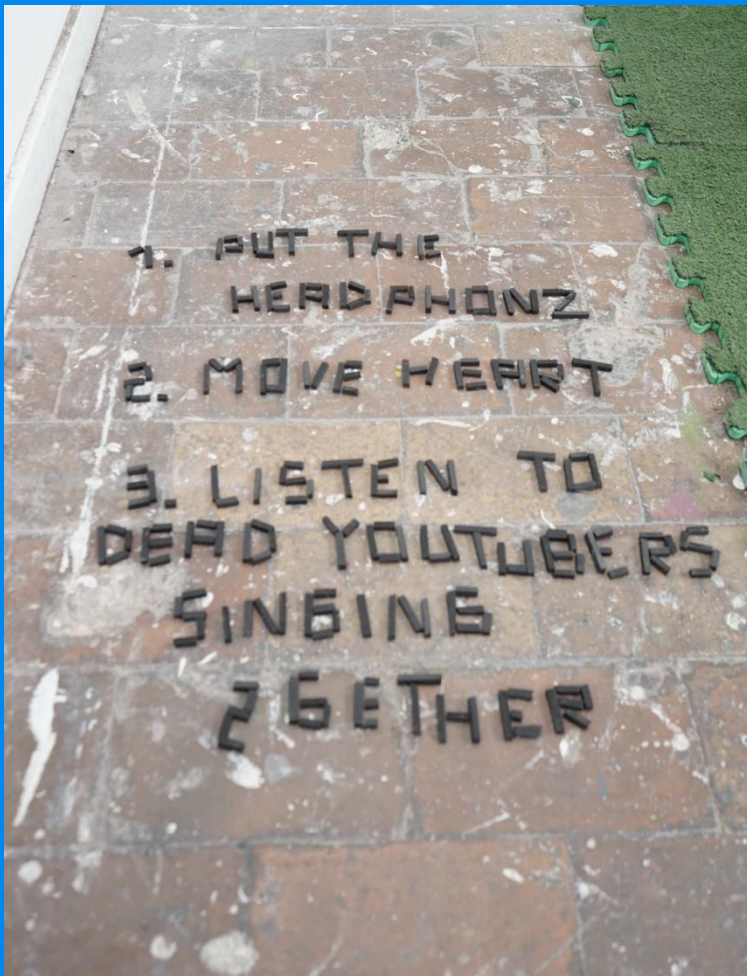 1. PUT THE
HEADPHONZ
2. MOVE HEART
3. LISTEN TO
DEAD YOUTUBERS
SINGING
2GETHER